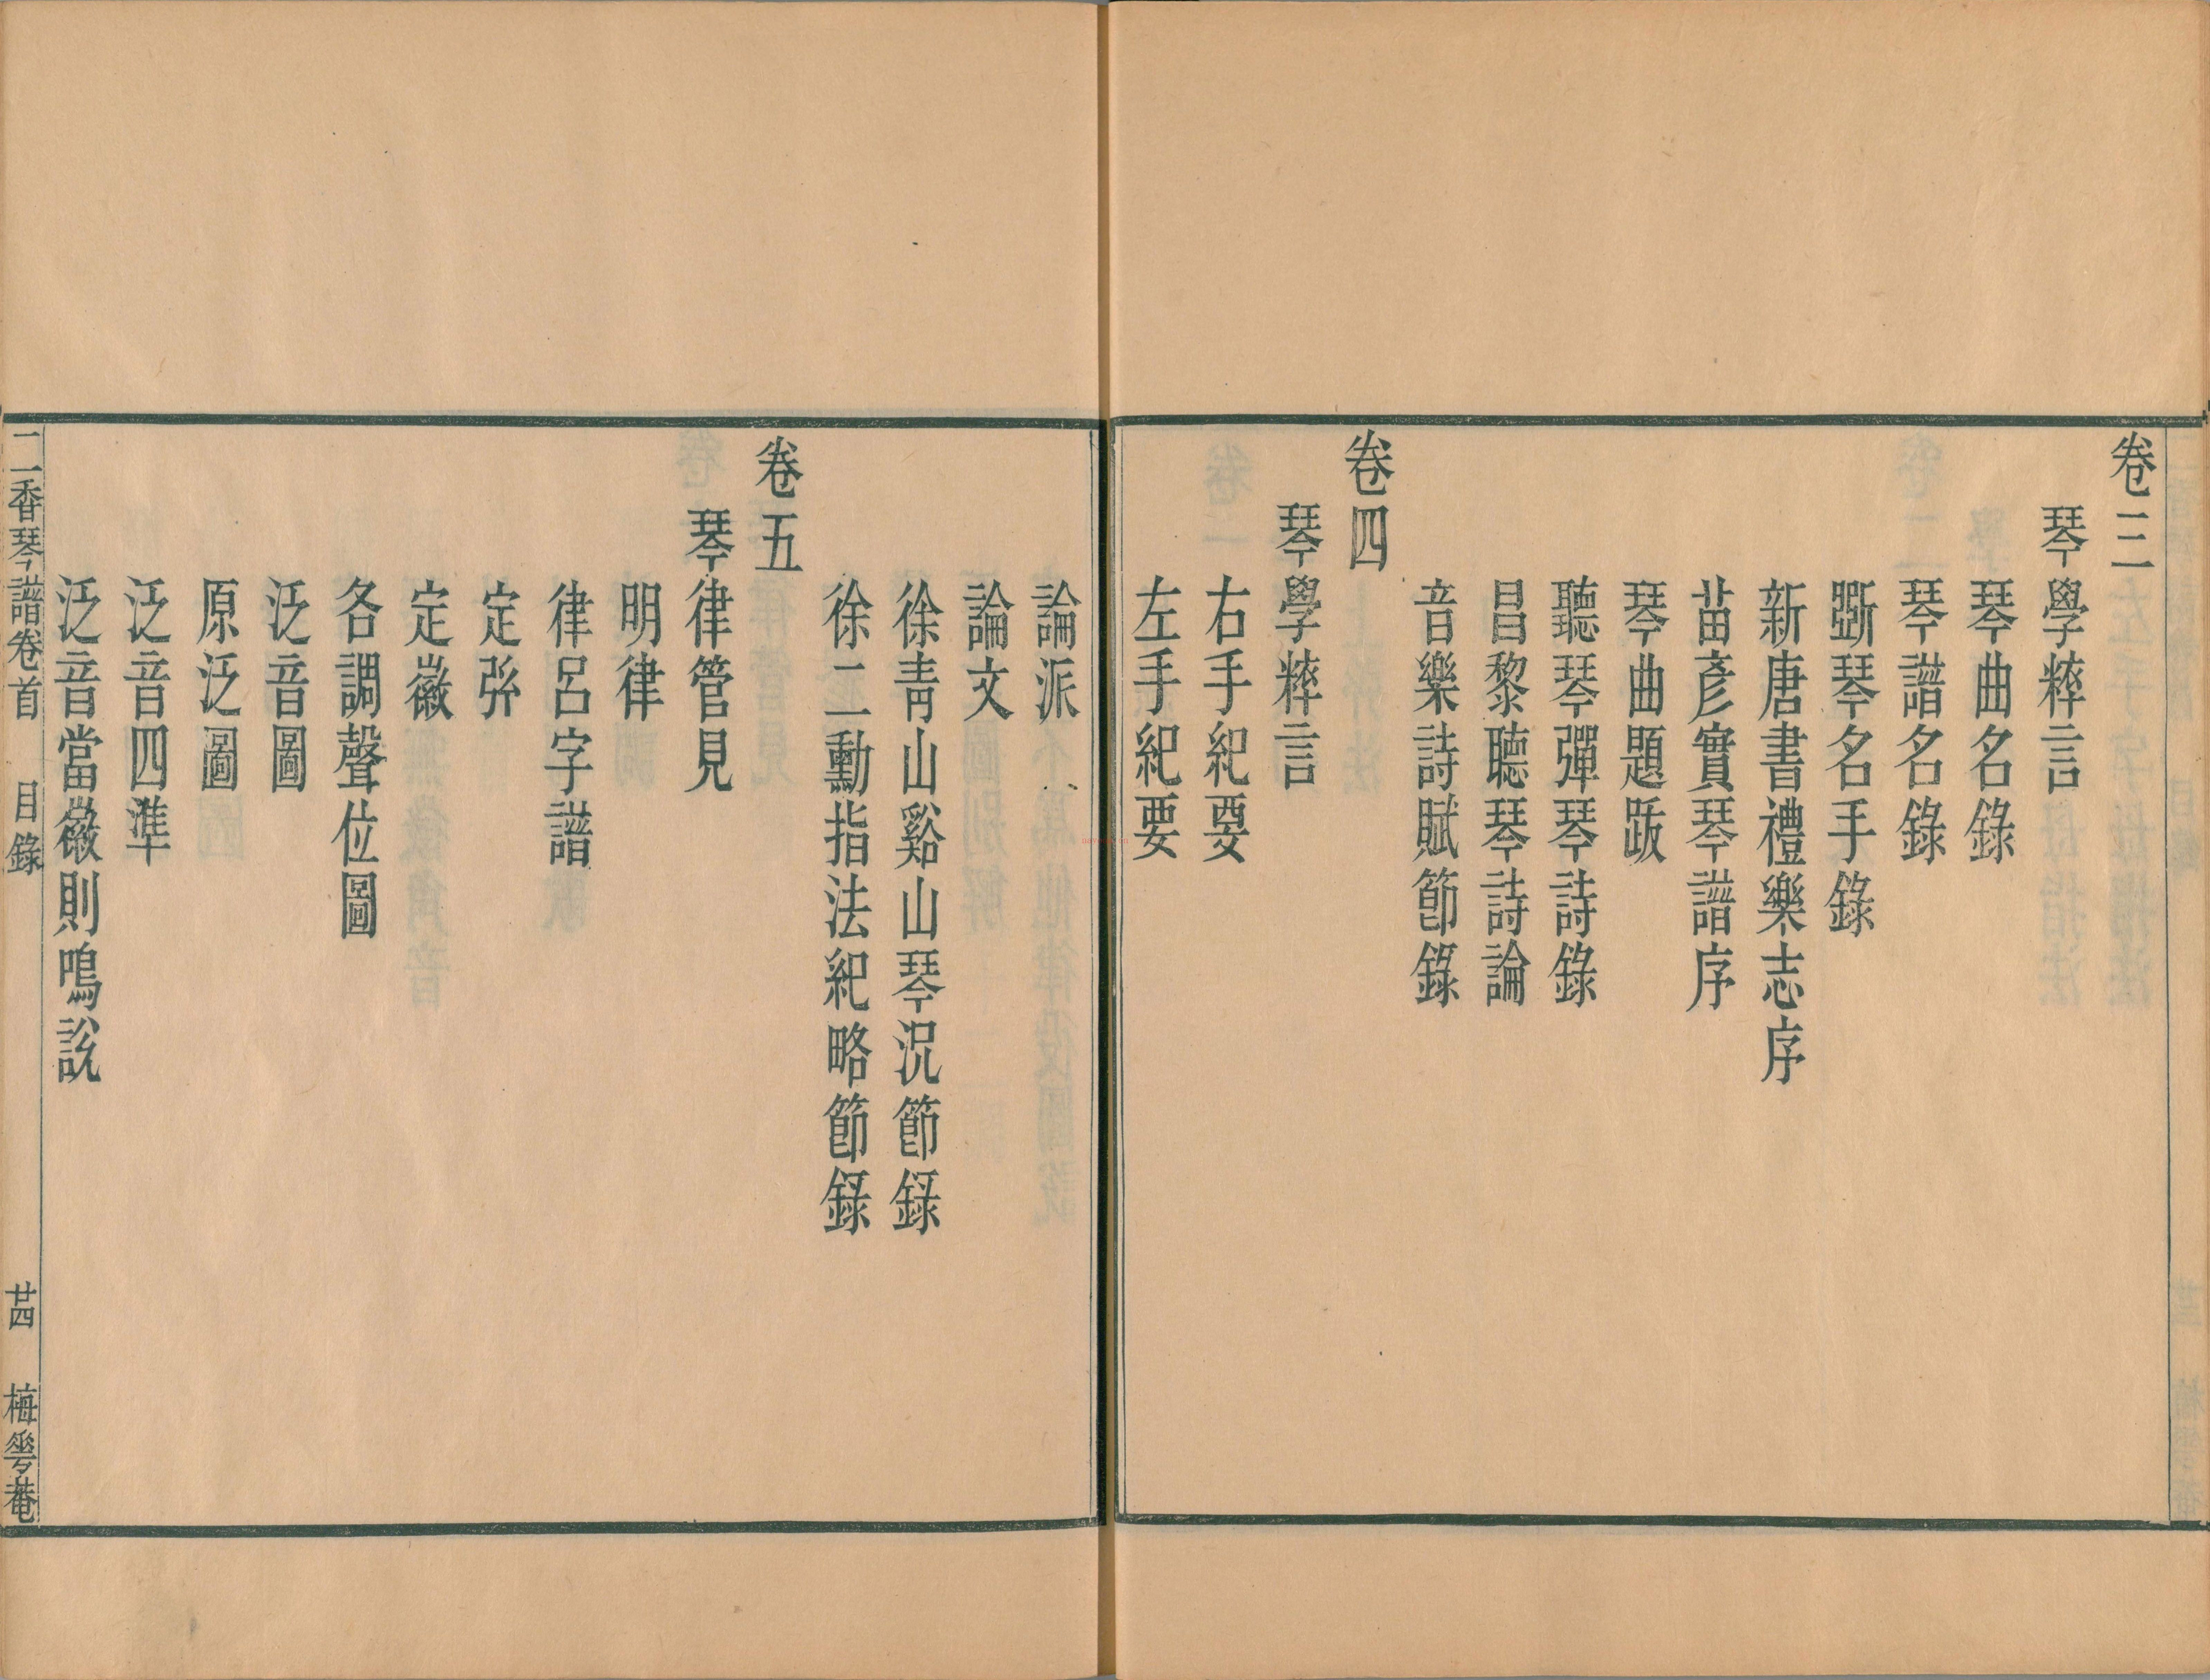 卷三
琴學粹言
琴曲名錄
琴譜名錄
斲琴名手錄
新唐書禮樂志序
苗彥實琴譜序
琴曲題跋
聽琴彈琴詩錄
昌黎聽琴詩論
音樂詩賦節錄
卷四
琴學粹言
右手紀要
左手紀要
論派
論文
徐靑山谿山琴況節錄
徐二勳指法紀略節錄
卷五
琴律管見
明律
律呂字譜
定弦
定徽
各調聲位圖
泛音圖
原泛圖
泛音四準
泛音當徽則鳴說
二香琴譜卷首 目錄 廿四 梅華菴